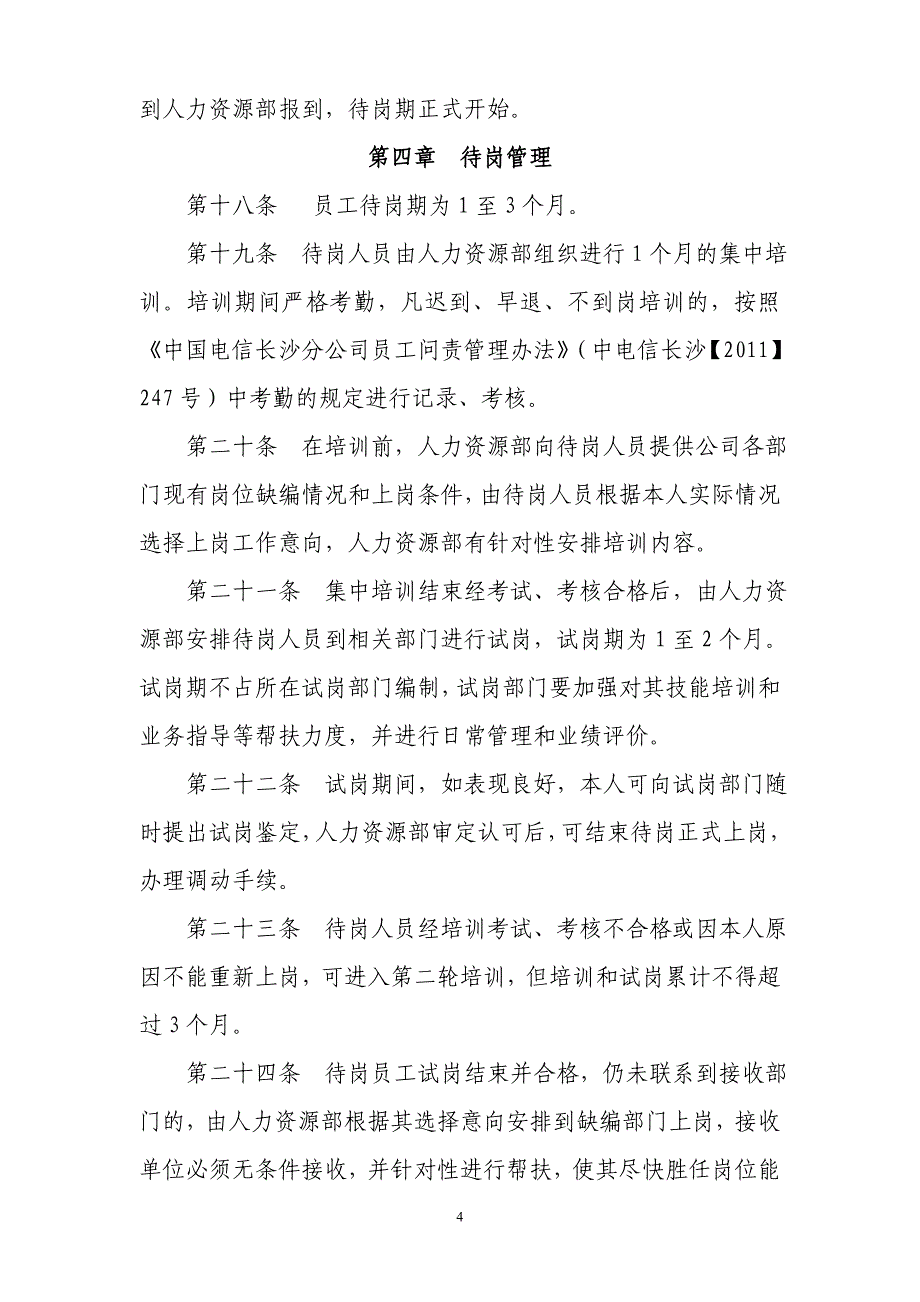 到人力资源部报到，待岗期正式开始。
第四章　待岗管理
第十八条　 员工待岗期为 1 至 3 个月。
第十九条　待岗人员由人力资源部组织进行 1 个月的集中培
训。培训期间严格考勤，凡迟到、早退、不到岗培训的，按照
《中国电信长沙分公司员工问责管理办法》（中电信长沙【2011】
247 号）中考勤的规定进行记录、考核。
第二十条　在培训前，人力资源部向待岗人员提供公司各部
门现有岗位缺编情况和上岗条件，由待岗人员根据本人实际情况
选择上岗工作意向，人力资源部有针对性安排培训内容。
第二十一条　集中培训结束经考试、考核合格后，由人力资
源部安排待岗人员到相关部门进行试岗，试岗期为 1 至 2 个月。
试岗期不占所在试岗部门编制，试岗部门要加强对其技能培训和
业务指导等帮扶力度，并进行日常管理和业绩评价。
第二十二条　试岗期间，如表现良好，本人可向试岗部门随
时提出试岗鉴定，人力资源部审定认可后，可结束待岗正式上岗，
办理调动手续。
第二十三条　待岗人员经培训考试、考核不合格或因本人原
因不能重新上岗，可进入第二轮培训，但培训和试岗累计不得超
过 3 个月。
第二十四条　待岗员工试岗结束并合格，仍未联系到接收部
门的，由人力资源部根据其选择意向安排到缺编部门上岗，接收
单位必须无条件接收，并针对性进行帮扶，使其尽快胜任岗位能
4